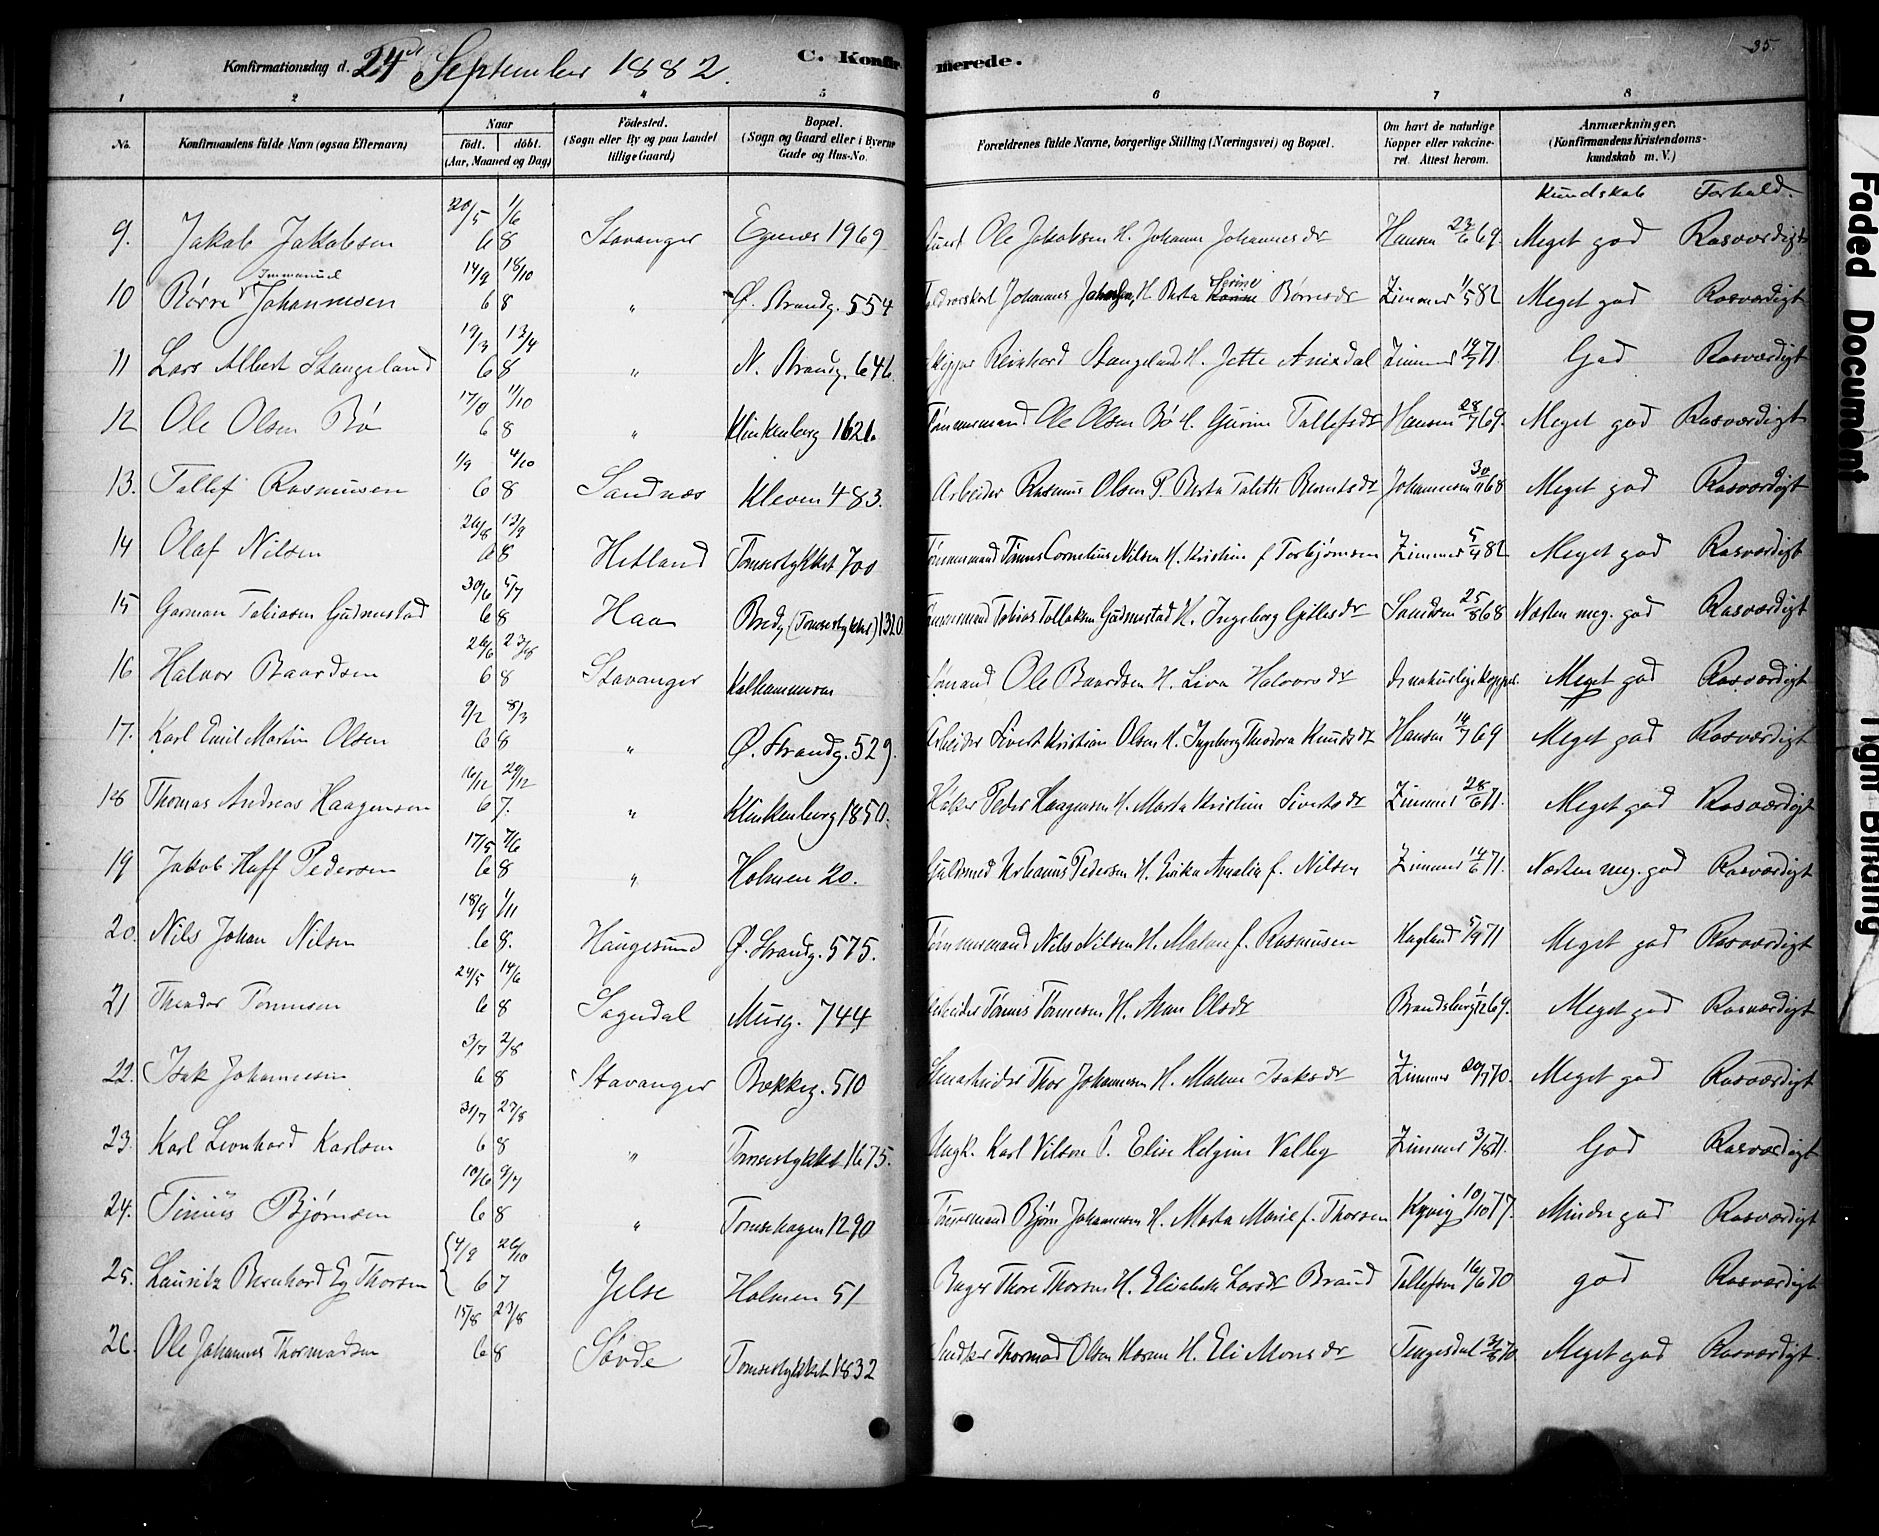 35.
Konfirmationsdag d. 24de September 1882. C. Konfir merede.
1 2 4 5 6 7 8
No. Konfirmandens fulde Navn (ogsaa Efternavn) Naar født. døbt. (Aar, Maaned og Dag) Fødested. (Sogn eller By og paa Landet tillige Gaard) Bopæl. (Sogn og Gaard eller i Byerne Gade og Hus-No. Forældrenes fulde Navne, borgerlige Stilling (Næringsvei) og Bopæl. Om havt de naturlige Kopper eller vakcineret. Attest herom. Anmærkninger. (Konfirmandens Kristendomskundskab m. V.)
Kundskab Forhold.
9. Jakob Jakobsen 20/5 1/6 68 Stavanger Egenes 1969 Ole Jakobsen H. Johanne Johannesdr Hansen 23/6 69. Meget god Rosværdigt
10 Børre Immanuel Johannesen 14/9 18/10 68 " Ø. Strandg. 554 Johannes H. Berta Serine Børresdr Zimmer 1/5 82 Meget god Rosværdigt
11 Lars Albert Stangeland 19/3 13/4 68 " N. Strandg. 646. Reinhard Stangeland H. Jette Zimmer 19/7 71. God Rosværdigt
12 Ole Olsen Bø 17/8 11/10 68 " Klinkenberg 1621. Tømmermand Ole Olsen Bø H. Gurine Tollefsdr Hansen 28/7 69. Meget god Rosværdigt
13. Tollef Rasmusen 1/9 4/10 68 Sandnæs Kleven 483. Arbeider Rasmus Olsen P. Berta Talette Berntsdr Johannesen 30/11 68 Meget god Rosværdigt
14 Olaf Nilsen 26/8 12/9 68 Hetland Tomsestykket 700 Tømmermand Tønnes Cornelius Nilsen H. Kristine f. Torbjørnsen Zimmer 5/4 82 Meget god Rosværdigt
15 Garman Tobiasen Gudmestad 30/6 5/7 68 Haa Bredg (Tomsestykket) 1320 Tømmermand Tobias Tollaksen Gudmestad H. Ingeborg Gitlesdr Sandsen 25/8 68 Næsten meg. god Rosværdigt
16 Halvor Baardsen 26/6 23/8 68 Stavanger Kalhammeren Sømand Ole Baardsen H. Liva Halvorsdr d. naturlige Kopper. Meget god Rosværdigt
17. Karl Emil Martin Olsen 9/2 8/3 68 " Ø. Strandg. 529. Arbeider Sivert Kristian Olsen H. Ingeborg Theodora Knudsdr Hansen 14/7 69 Meget god Rosværdigt
18 Thomas Andreas Haagensen 16/12 29/12 67. " Klinkenberg 1850. Peder Haagensen H. Marta Kristine Sivertsdr Zimmer 28/6 71. Meget god Rosværdigt
19 Jakob Hoff Pedersen 17/5 7/6 68 " Holmen 20. Guldsmed Urbanus Pedersen H. Erika Amalia f. Nilsen Zimmer 14/6 71. Næsten meg. god Rosværdigt
20. Nils Johan Nilsen 18/9 1/11 68. Haugesund Ø. Strandg. 575. Tømmermand Nils Nilsen H. Malene f. Rasmusen Hagland 5/9 71 Meget god Rosværdigt
21 Theodor Tønnesen 24/5 14/6 68 Sogndal Murg. 744 Arbeider Tønnes Tønnesen H. Ane Olsdr Brandsberg 1/12 69. Meget god Rosværdigt
22. Isak Johannesen 3/7 2/8 68 Stavanger Bækkeg. 510 Thor Johannesen H. Malene Isaksdr Zimmer 20/7 70. Meget god Rosværdigt
23. Karl Leonhard Karlsen 31/7 27/8 68 " Tomsestykket 1675. Ungk. Karl Nilson P. Elise Helgine Valby Zimmer 3/8 71. God Rosværdigt
24. Tinius Bjørnsen 10/6 9/7 68 " Tomsehagen 1290 Tømmermand Bjørn Johannesen H. Marta Marie f. Thorsen Kyvig 10/10 77. Mindre god Rosværdigt
25. Lauritz Bernhard Eg Thorsen 4/9 26/10 67 Jelse Holmen 51 Bager Thore Thorsen H. Elisabeth Larsdr Braud Tollefsen 16/6 70 god Rosværdigt
26. Ole Johannes Thormodsen 15/8 23/8 68 Søvde Tomsestykket 1832 Thormod Olsen H. Eli Monsdr Tengesdal Meget god Rosværdigt.
Faded Document
Tight Binding
2